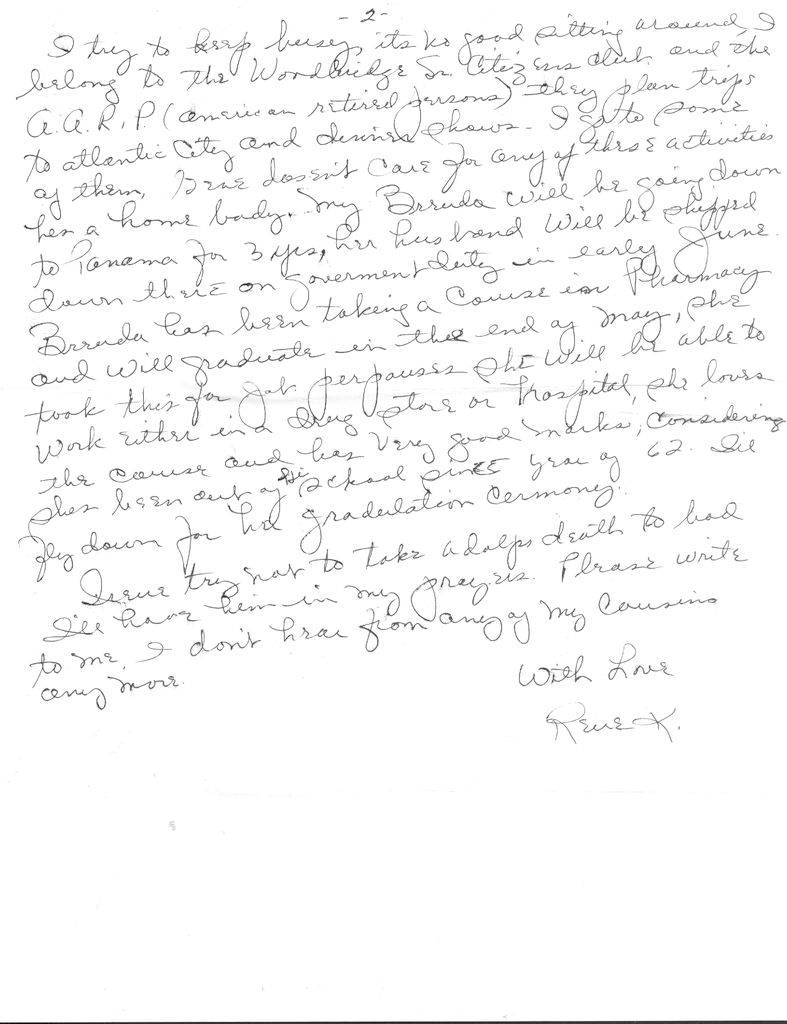 - 2 -
I try to keep busey, its no good sitting around, I
belong to the Woodbridge Sr. Citizens club and the
A.A.R.P. (american retired persons) they plan trips
to atlantic City and dinner shows - I go to some
of them, Gene doesn't care for any of these activities
hes a home body. My Brenda will be going down
to Panama for 3 yrs, her husband will be shipped
down there on goverment duty in early June.
Brenda has been taking a Course in Pharmacy
and will graduate in the end of May, she
took this for job perpauses she will be able to
work either in a drug store or hospital, she loves
the course and has very good marks, considering
shes been out of Hi School since year of 62. I'll
fly down for her gradulation cermoney.
Irene try not to take adolps death to bad
I'll have him in my prayers. Please write
to me, I don't hear from any of my Cousins
any more.
With Love
Rene K.